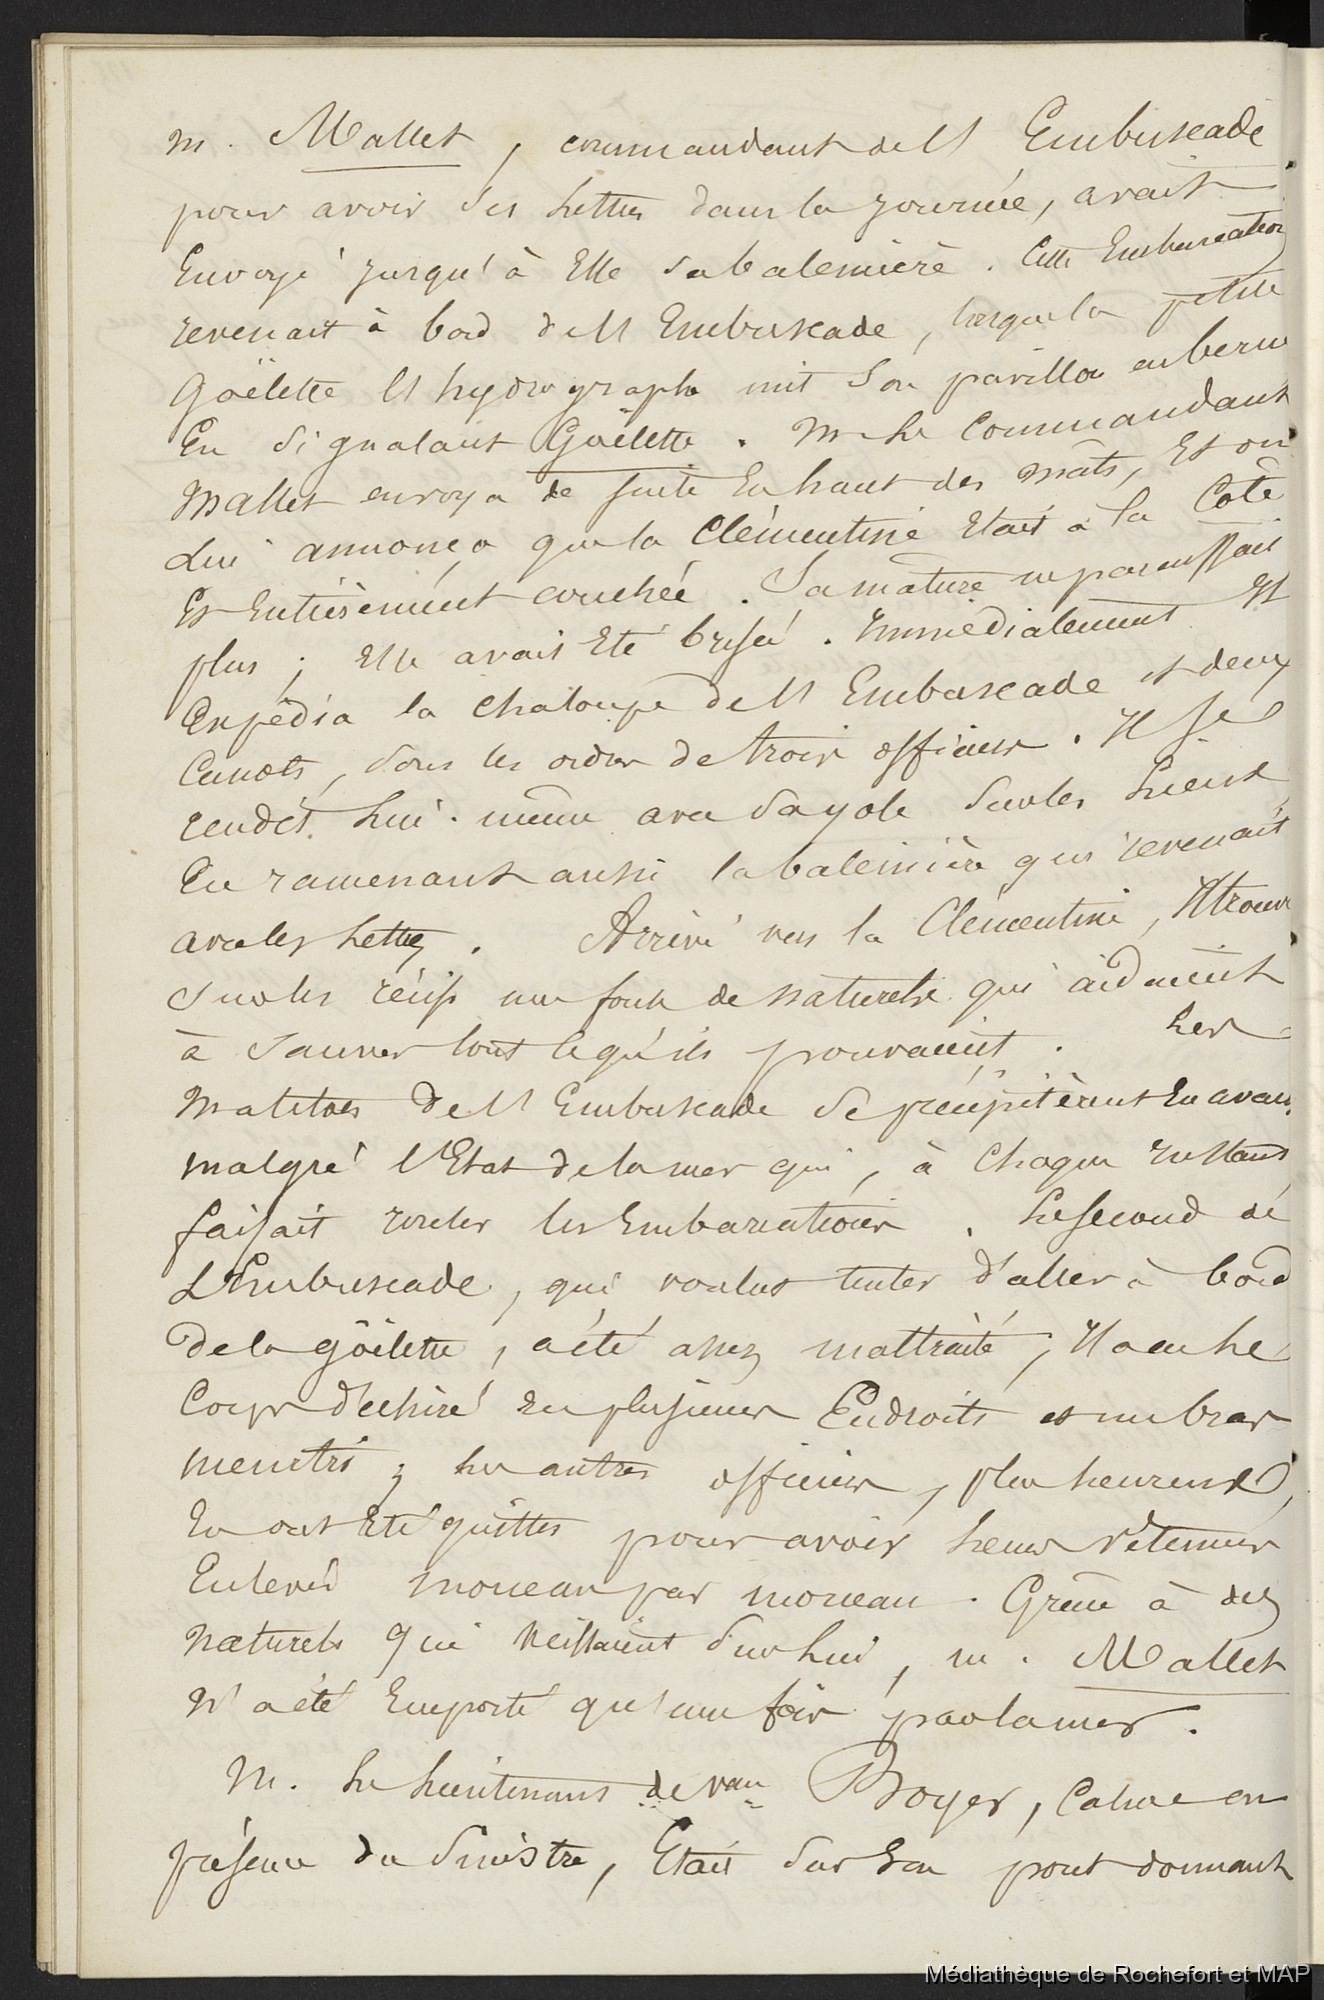 M. Mallet, commandant de l'Embuscade
pour avoir des lettres dans la journée, avait
Envoyé jusqu'à Elle sa baleinière. Cette Embarcation
revenait à bord de l'Embuscade, lorsque la petite
Goëlette l'hydrographe mit son pavillon en berne
En signalant Goëlette. M. le Commandant
Mallet envoya de suite En haut des mâts, Et on
Lui annonça que la Clémentine Etait à la Côte
Et Entièrement couchée. Sa mature ne paraissait
plus ; Elle avait Eté brisée. Immédiatement Il
Expédia la chaloupe de l'Embuscade et deux
Canots, sous les ordres de trois officiers. Il se
rendit lui-même avec sa yole sur les lieux
En ramenant aussi la baleinière qui revenait
avec les lettres. Arrivé vers la Clémentine, Il trouve
sur les récifs une foule de naturels qui aidaient
à sauver tout ce qu'ils pouvaient. Les
Matelots de l'Embuscade se précipitèrent En avant
malgré l'Etat de la mer qui, à chaque Instant,
faisait rouler les Embarcations. Le second de
L'Embuscade, qui voulut tenter d'aller à bord
De la goëlette, a été assez maltraité ; Il a eu le
Corps déchiré En plusieurs Endroits et un bras
meurtri ; les autres officiers, plus heureux,
En ont Eté quittes pour avoir leurs vêtements
Enlevés morceau par morceau. Grâce à des
naturels qui veillaient sur lui, M. Mallet
N'a été Emporté qu'une fois par la mer.
M. le lieutenant de vau Boyer, Calme en
présence du Sinistre, Etait sur son pont donnant
Médiathèque de Rochefort et MAP